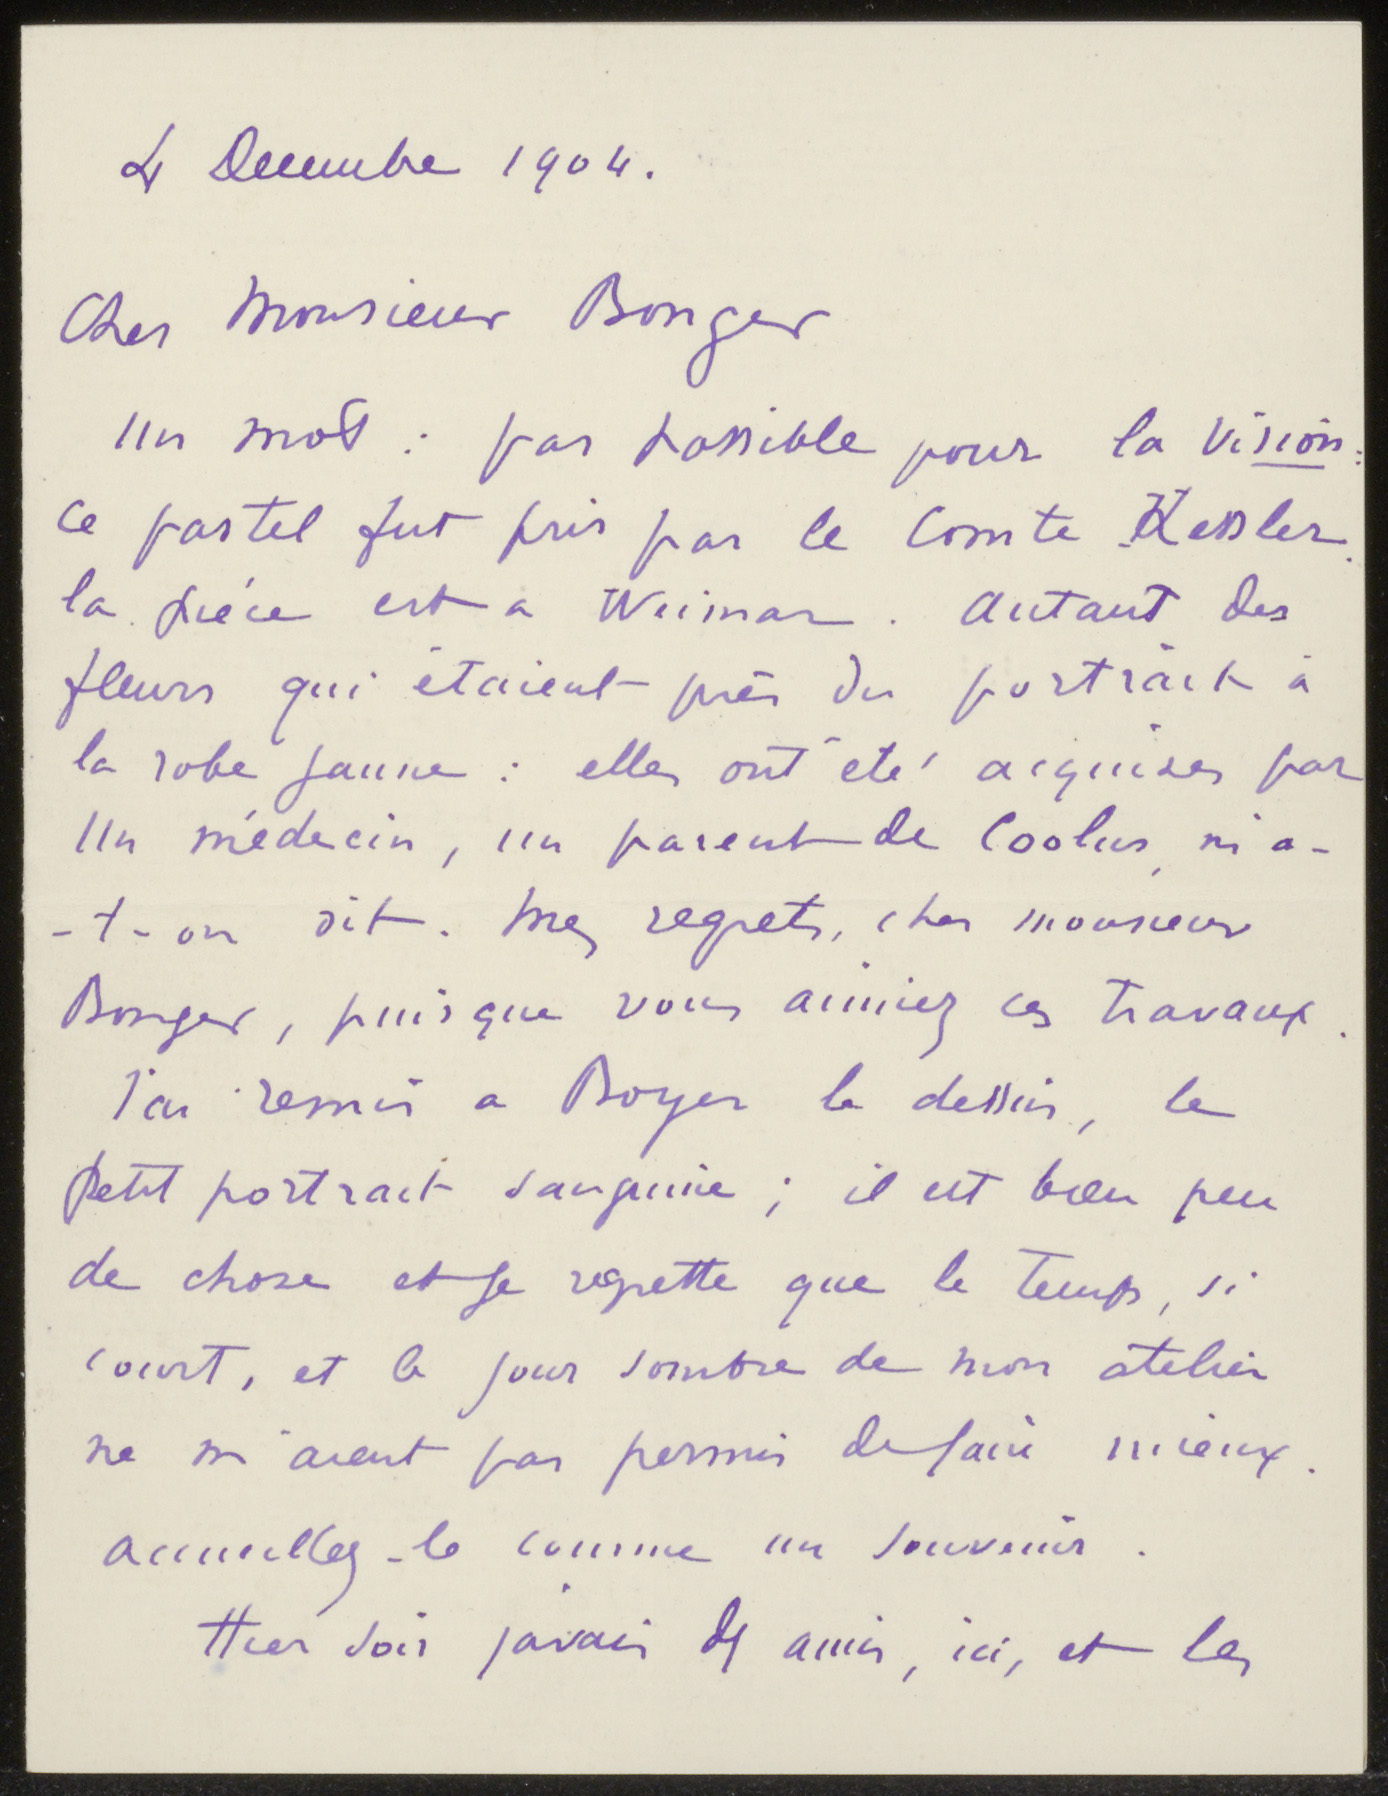 4 Decembre 1904.
Cher Monsieur Bonger
Un mot : pas possible pour la Vision :
ce pastel fut pris par le Comte Kessler.
la pièce est a Weimar. Autant des
fleurs qui étaient près du portrait à
la robe jaune : elles ont été acquises par
Un médecin, un parent de Coolus, m'a-
-t-on dit. Mes regrets, cher monsieur
Bonger, puisque vous aimiez ces travaux.
J'ai remis a Boyer le dessin, le
petit portrait sanguine ; il est bien peu
de chose et je regrette que le temps, si
court, et le jour sombre de mon atelier
ne m'aient pas permis de faire mieux.
Accueillez-le comme un souvenir.
Hier soir j'avais des amis, ici, et les